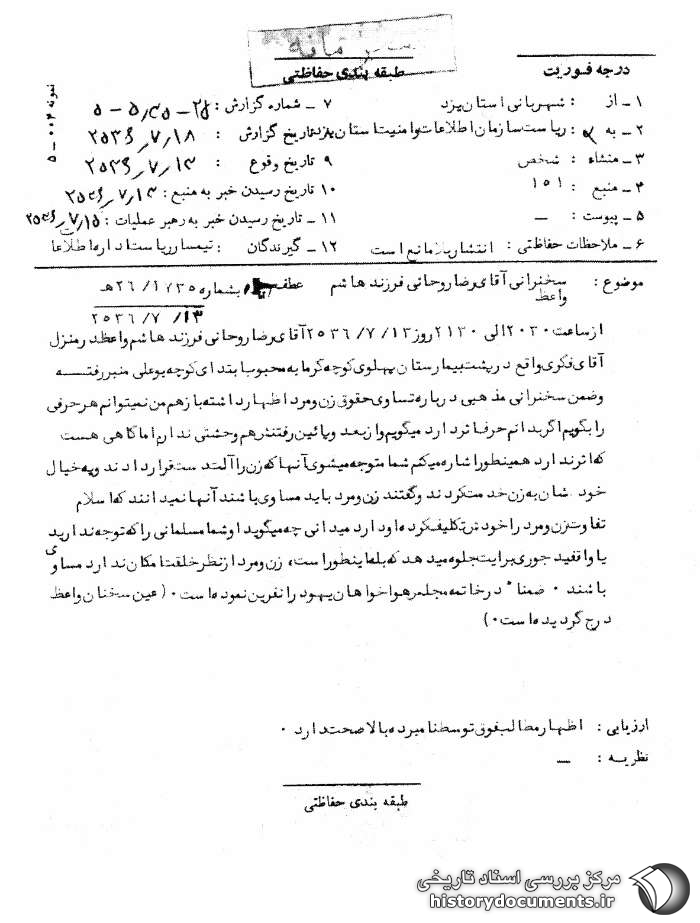 محرمانه
درجه فوریت
طبقه بندی حفاظتی
نمونه ۰۰۴ – ۵
۱ – از : شهربانی استان یزد
۷ – شماره گزارش :
۲ – به : ریاست سازمان اطلاعات وامنیت استان یزد
۸ – تاریخ گزارش : ۲۵۳۶/۷/۱۸
۳ – منشاء : شخص
۹ – تاریخ وقوع : ۲۵۳۶/۷/۱۳
۴ – منبع : ۱۵۱
۱۰ – تاریخ رسیدن خبر به منبع : ۲۵۳۶/۷/۱۳
۵ – پیوست : –
۱۱ – تاریخ رسیدن خبر به رهبر عملیات : ۲۵۳۶/۷/۱۵
۶ – ملاحظات حفاظتی : انتشار بلامانع است
۱۲ – گیرندگان : تیمسار ریاست اداره اطلاعا
موضوع : سخنرانی آقای رضا روحانی فرزند هاشم واعظ
عطف بشماره ۲۶/۱۷۳۵هـ
۲۵۳۶/۷/۱۳
از ساعت ۲۰۳۰ الی ۲۱۳۰ روز ۲۵۳۶/۷/۱۳ آقای رضا روحانی فرزند هاشم واعظ در منزل
آقای فکری واقع در پشت بیمارستان پهلوی کوچه گرمابه محبوب ابتدای کوچه بوعلی منبر رفتــه
وضمن سخنرانی مذهبی درباره تساوی حقوق زن ومرد اظهار داشته باز هم من نمیتوانم هر حرفی
را بگویم اگر بدانم حرف اثر دارد میگویم واز بعد وپائین رفتنش هم وحشتی ندارم اما گاهی هست
که اثر ندارد همینطور اشاره میکنم شما متوجه میشوی آنها که زن را آلت دست قرار دادند وبه خیال
خود شان به زن خدمت کردند وگفتند زن ومرد باید مساوی باشند آنها نمیدانند که اسلام
تفاوت زن ومرد را خودش تکلیف کرده او دارد میدانی چه میگوید او شما مسلمانی را که توجه ندارید
یا واقفید جوری برایت جلوه میدهد که بله اینطور است، زن ومرد از نظر خلقت امکان ندارد مساوی
باشند ۰ ضمنا" در خاتمه مجلس هواخواهان یهود را نفرین نموده است ۰ ( عین سخنان واعظ
درج گردیده است ۰ )
ارزیابی : اظهار مطالب فوق توسط نامبرده بالا صحت دارد ۰
نظریــه : –
طبقه بندی حفاظتی
مرکز بررسی اسناد تاریخی
historydocuments.ir